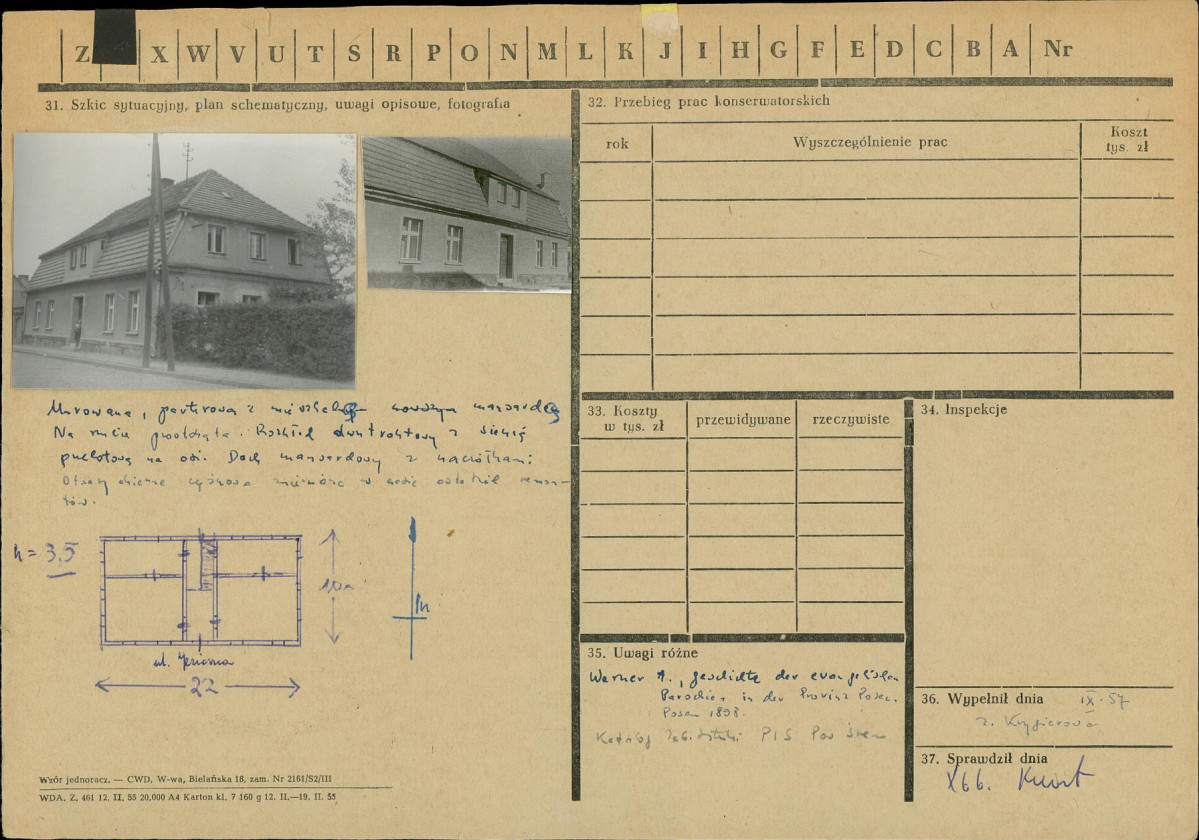 Z X W V U T S R P O N M L K J I H G F E D C B A Nr
31. Szkic sytuacyjny, plan schematyczny, uwagi opisowe, fotografia
Murowana, parterowa z mieszkalną mansardą
Na rzucie prostokąta. Rozkład dwutraktowy z sienią
przelotową na osi. Dach mansardowy z naczółkami
w czasie ostatnich remon-
tów.
h = 3,5
10m
ul.
22
Wzór jednoracz. — CWD, W-wa, Bielańska 18, zam. Nr 2161/S2/III
WDA. Z. 461 12. II. 55 20,000 A4 Karton kl. 7 160 g 12. II.—19. II. 55
32. Przebieg prac konserwatorskich
rok
Wyszczególnienie prac
Koszt
tys. zł
33. Koszty
w tys. zł
przewidywane
rzeczywiste
34. Inspekcje
35. Uwagi różne
Werner A., Geschichte der evangelischen
Parochien in der Provinz Posen.
Posen 1898.
Katalog Zab. Sztuki PIS Pow Śrem
36. Wypełnił dnia
IX. 57
37. Sprawdził dnia
X 66.